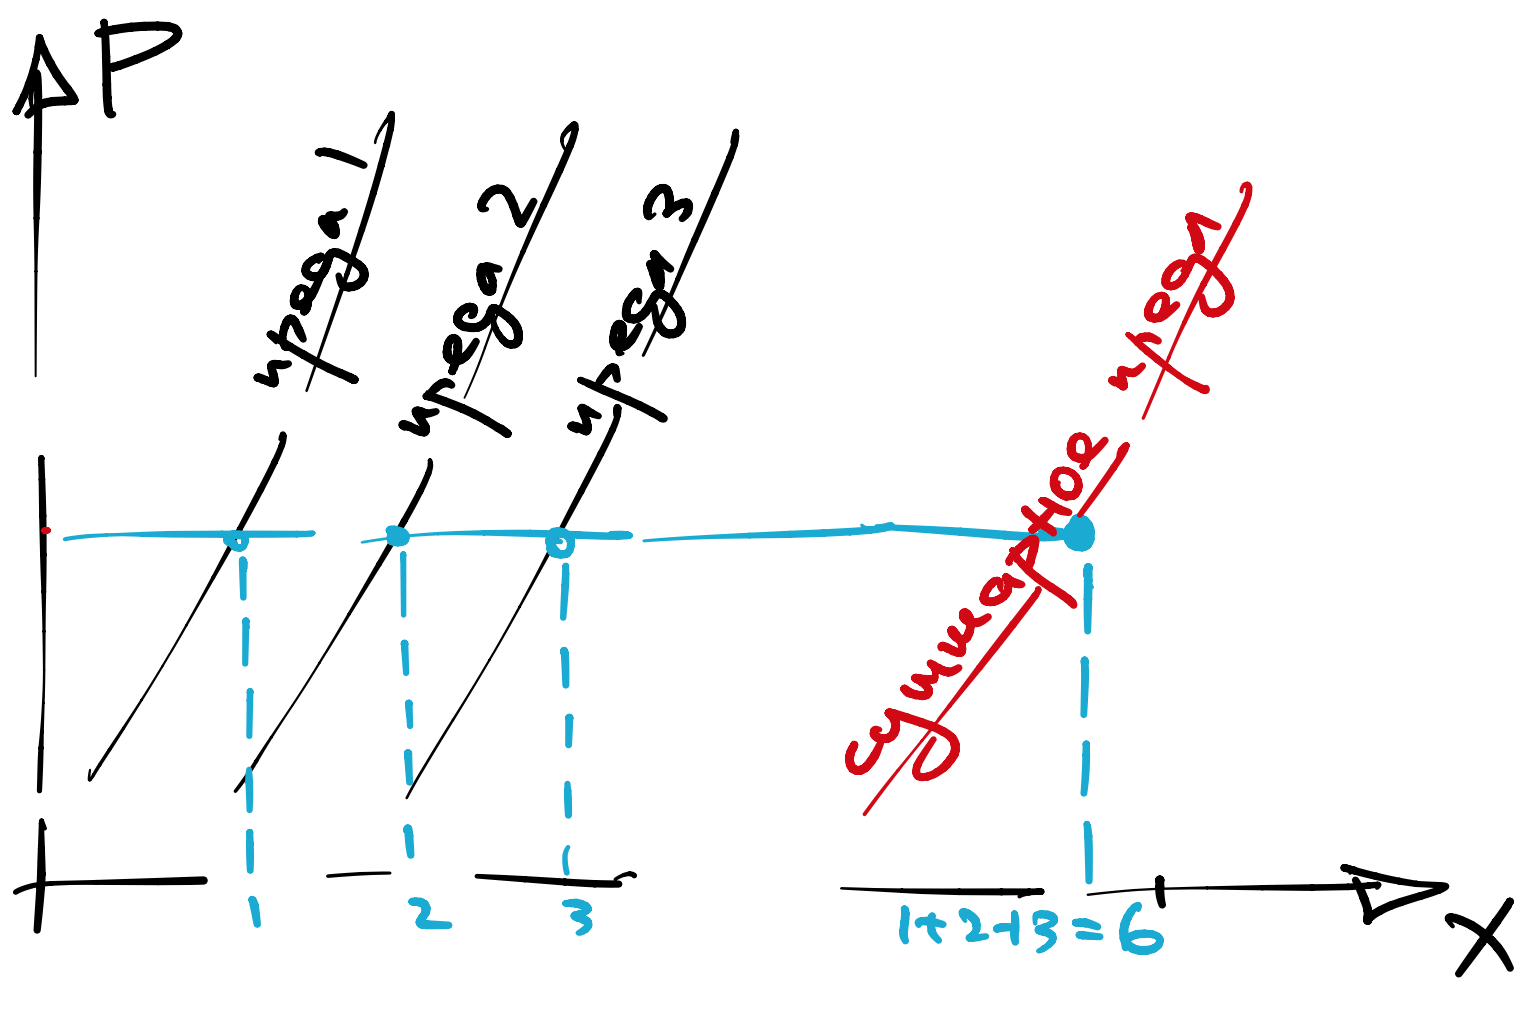 P
предл 1
предл 2
предл 3
суммарное предл
1
2
3
1+2+3=6
X